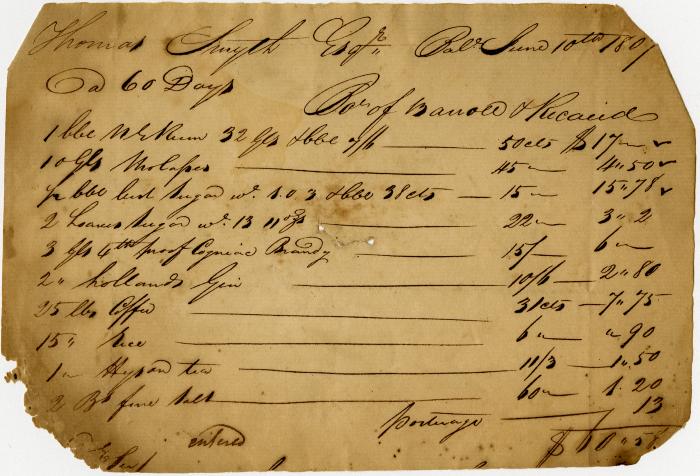 Thomas Smyth Esqr Balt June 10th 1807
a 60 Days
Bot of Barroll & Ricaud
1 bbl N E Rum 32 Gls & bbl 7/6 50cts $ 17 "
10 Gls Molasses 45 " 4 " 50
1/2 bbl best Sugar wt. 1.0.3 & bbl 38cts 15 " 15 " 78
2 Loaves Sugar wt. 13 11oz 22 " 3 " 2
3 Gls 4th proof Cogniac Brandy 15/ 6 "
2 " hollands Gin 10/6 2 " 80
25 lbs Coffee 31cts 7 " 75
15 " Rice 6 " " 90
1 " Hyson tea 11/3 1 " 50
2 Bs fine salt 60 " 1.20
porterage 13
$ 60 " 58
entered